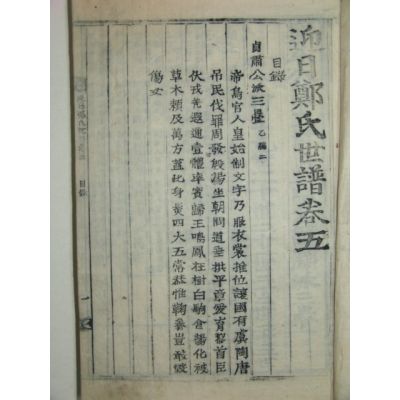 迎日鄭氏世譜卷五
目錄
貞肅公派三疊
帝鳥官人皇始制文字乃服衣裳推位讓國有虞陶唐
吊民伐罪周發殷湯坐朝問道垂拱平章愛育黎首臣
伏戎羌遐邇壹體率賓歸王鳴鳳在樹白駒食場化被
草木賴及萬方蓋此身髮四大五常恭惟鞠養豈敢毀
傷女
目錄
一